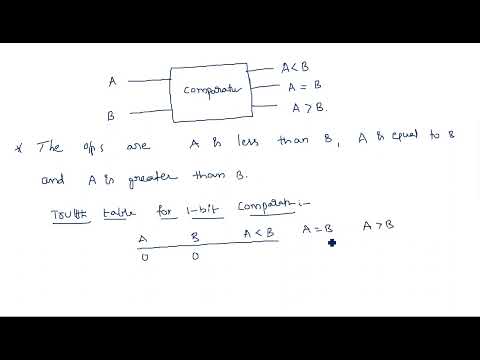 A<B
A
Comparator
A = B
B
A > B
* The o/ps are A is less than B, A is equal to B
and A is greater than B.
Truth table for 1-bit Comparator:-
A B A < B A = B A > B
0 0